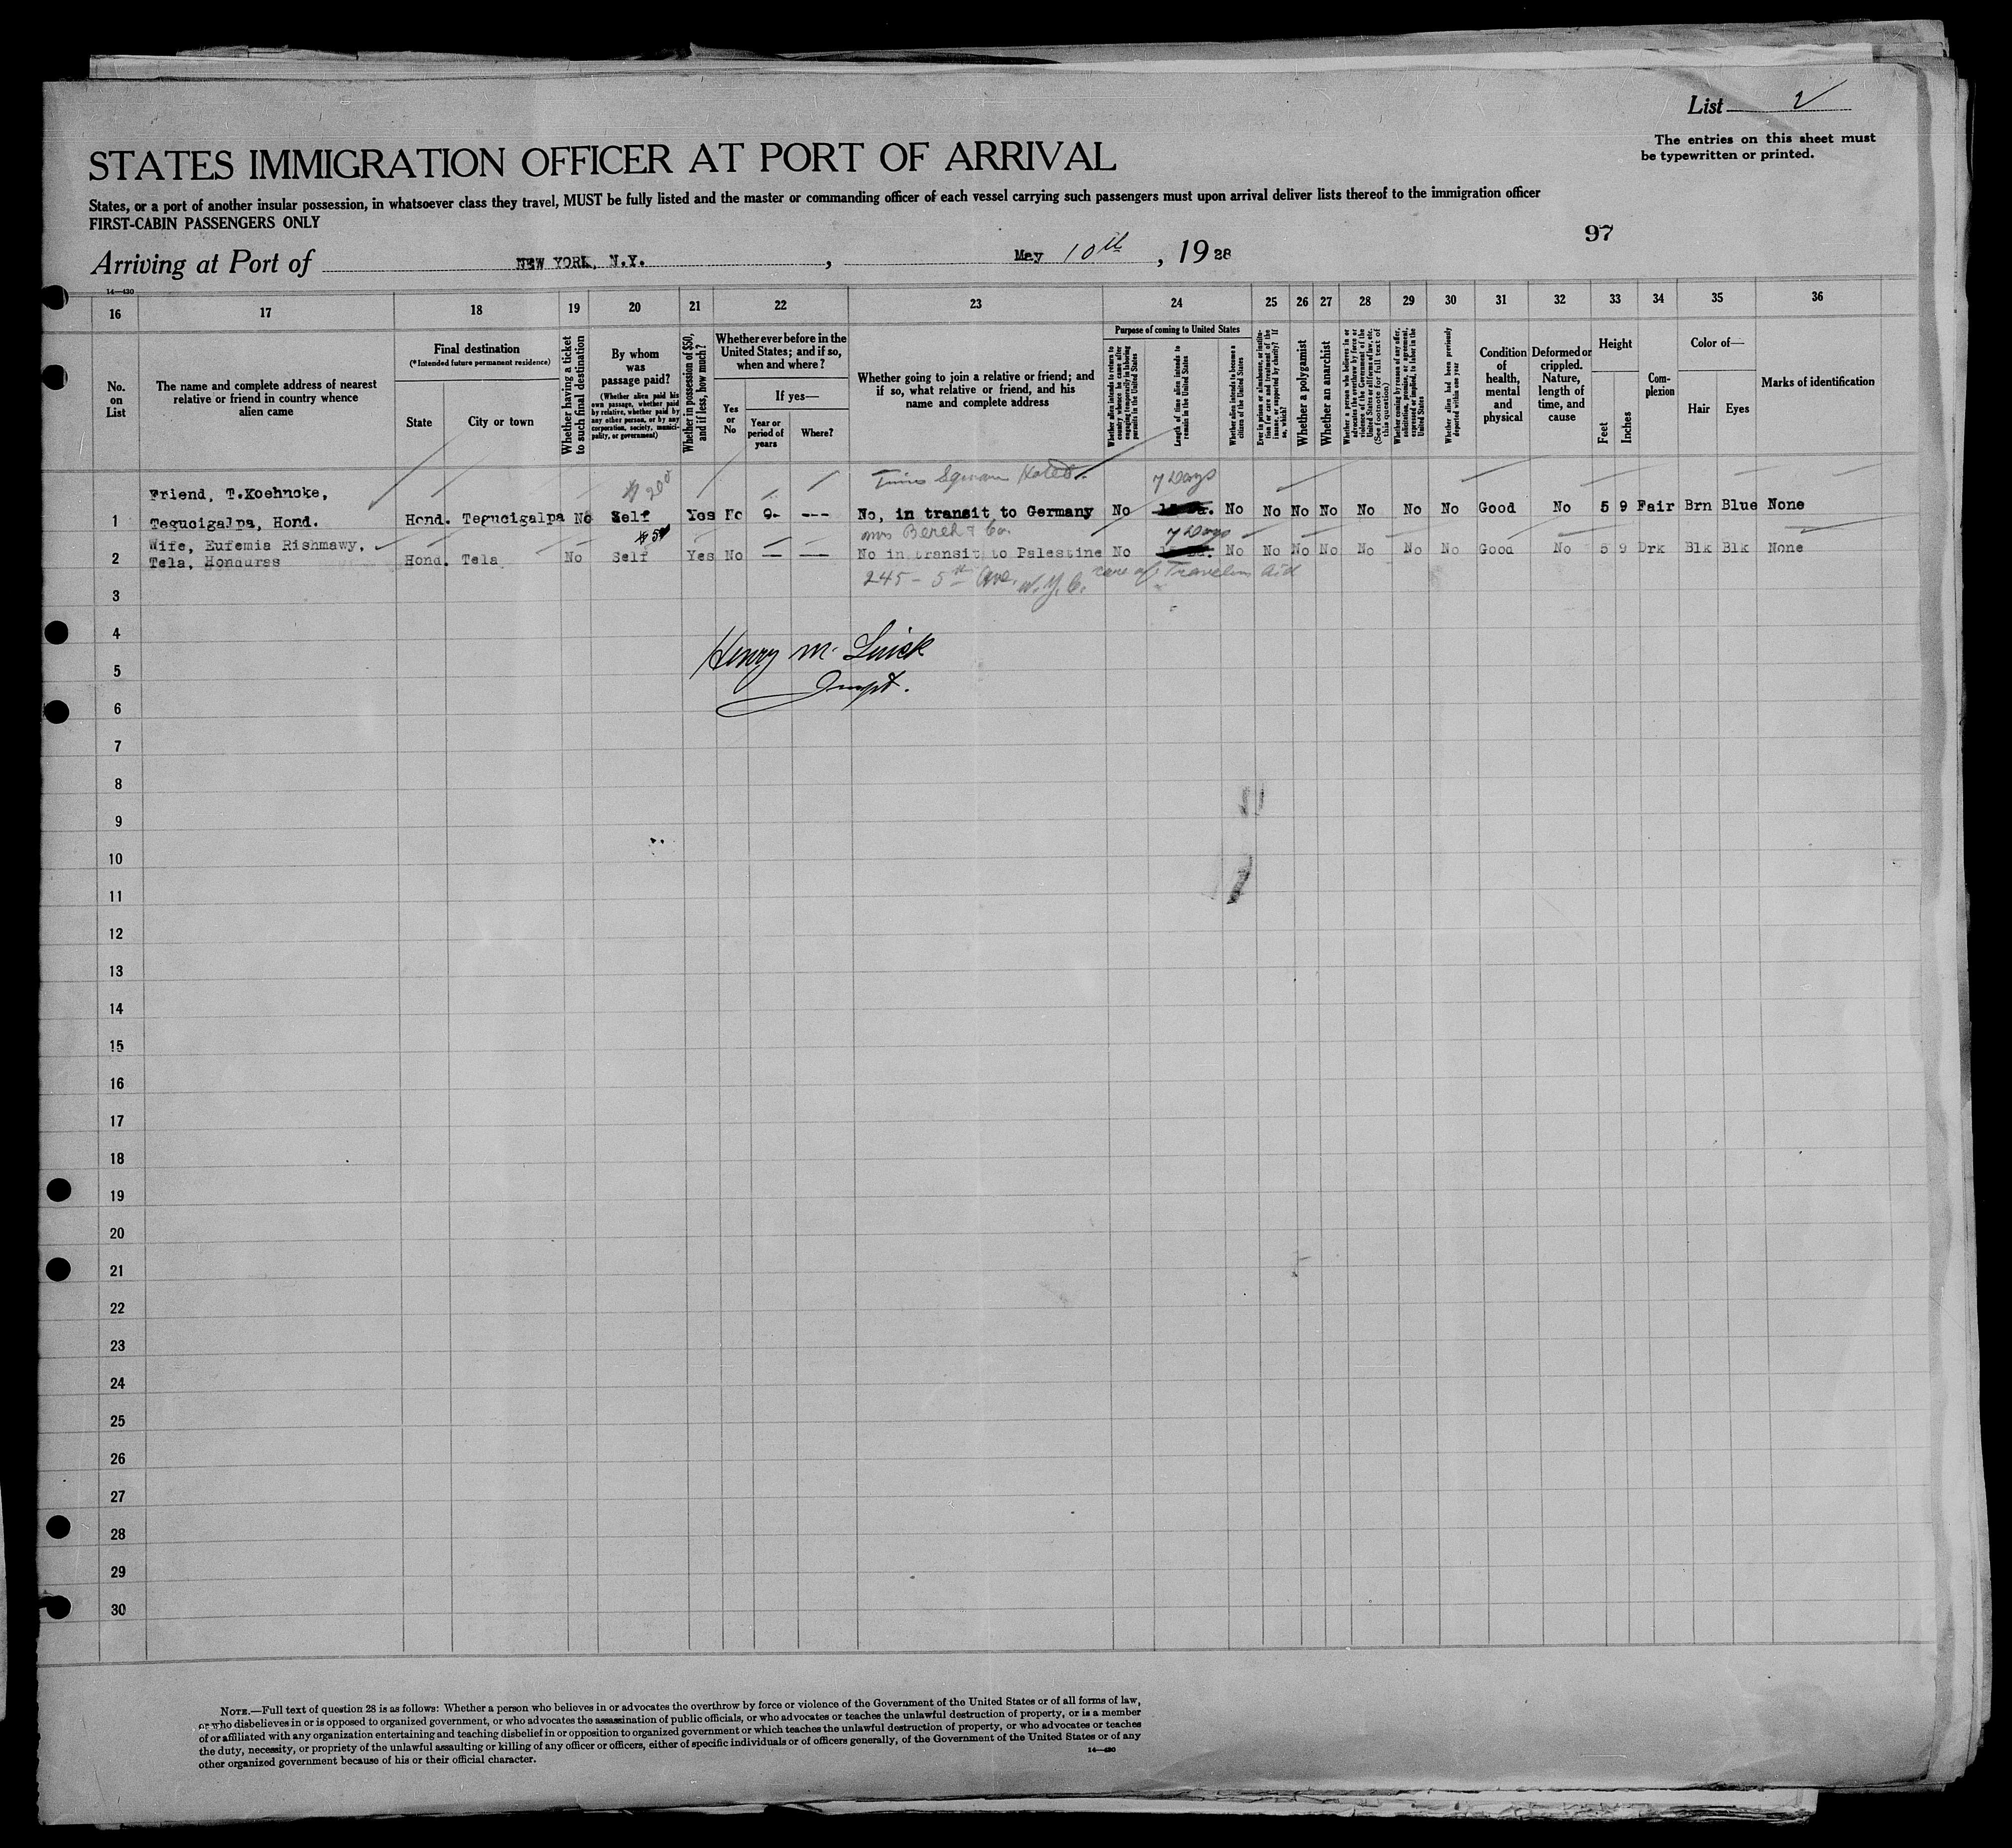 List 2
The entries on this sheet must
be typewritten or printed.
STATES IMMIGRATION OFFICER AT PORT OF ARRIVAL
States, or a port of another insular possession, in whatsoever class they travel, MUST be fully listed and the master or commanding officer of each vessel carrying such passengers must upon arrival deliver lists thereof to the immigration officer
FIRST-CABIN PASSENGERS ONLY
97
Arriving at Port of NEW YORK, N.Y. , May 10th , 1928
14—430
16 17 18 19 20 21 22 23 24 25 26 27 28 29 30 31 32 33 34 35 36
No. on List
The name and complete address of nearest relative or friend in country whence alien came
Final destination
(*Intended future permanent residence)
State
City or town
Whether having a ticket to such final destination
By whom was passage paid?
(Whether alien paid his own passage, whether paid by relative, whether paid by any other person, or by any corporation, society, municipality, or government)
Whether in possession of $50, and if less, how much?
Whether ever before in the United States; and if so, when and where?
Yes or No
If yes—
Year or period of years
Where?
Whether going to join a relative or friend; and if so, what relative or friend, and his name and complete address
Purpose of coming to United States
Whether alien intends to return to country whence he came after engaging temporarily in laboring pursuits in the United States
Length of time alien intends to remain in the United States
Whether alien intends to become a citizen of the United States
Ever in prison or almshouse, or institution for care and treatment of the insane, or supported by charity? If so, which?
Whether a polygamist
Whether an anarchist
Whether a person who believes in or advocates the overthrow by force or violence of the Government of the United States or all forms of law, etc. (See footnote for full text of this question)
Whether coming by reason of any offer, solicitation, promise, or agreement, expressed or implied, to labor in the United States
Whether alien had been previously deported within one year
Condition of health, mental and physical
Deformed or crippled. Nature, length of time, and cause
Height
Feet
Inches
Complexion
Color of—
Hair
Eyes
Marks of identification
$200 Times Square Hotel 7 Days
Friend, T.Koehncke,
1 Tegucigalpa, Hond. Hond. Tegucigalpa No Self Yes No --- No, in transit to Germany No No No No No No No No Good No 5 9 Fair Brn Blue None
$50 Bereh & Co. 7 Days
Wife, Eufemia Rishmawy,
2 Tela, Honduras Hond. Tela No Self Yes No — — No in transit to Palestine No No No No No No No No Good No 5 9 Drk Blk Blk None
245 - 5th Ave. N.Y.C. care of Travelers Aid
3
4
Henry M.
5
Inspt.
6
7
8
9
10
11
12
13
14
15
16
17
18
19
20
21
22
23
24
25
26
27
28
29
30
NOTE.—Full text of question 28 is as follows: Whether a person who believes in or advocates the overthrow by force or violence of the Government of the United States or of all forms of law,
or who disbelieves in or is opposed to organized government, or who advocates the assassination of public officials, or who advocates or teaches the unlawful destruction of property, or is a member
of or affiliated with any organization entertaining and teaching disbelief in or opposition to organized government or which teaches the unlawful destruction of property, or who advocates or teaches
the duty, necessity, or propriety of the unlawful assaulting or killing of any officer or officers, either of specific individuals or of officers generally, of the Government of the United States or of any
other organized government because of his or their official character.
14—430